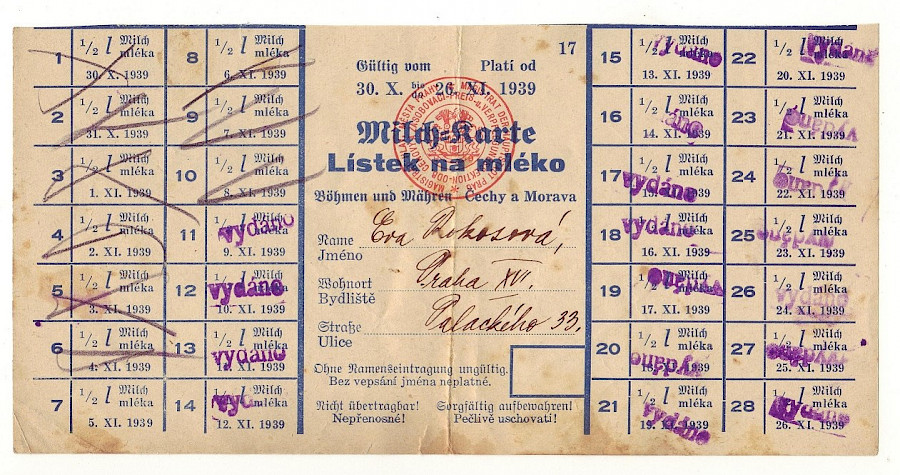 1 1/2 l Milch mléka 30. X. 1939
8 1/2 l Milch mléka 6. XI. 1939
2 1/2 l Milch mléka 31. X. 1939
9 1/2 l Milch mléka 7. XI. 1939
3 1/2 l Milch mléka 1. XI. 1939
10 1/2 l Milch mléka 8. XI. 1939
4 1/2 l Milch mléka 2. XI. 1939
11 1/2 l Milch mléka 9. XI. 1939 vydáno
5 1/2 l Milch mléka 3. XI. 1939
12 1/2 l Milch mléka 10. XI. 1939 vydáno
6 1/2 l Milch mléka 4. XI. 1939
13 1/2 l Milch mléka 11. XI. 1939 vydáno
7 1/2 l Milch mléka 5. XI. 1939
14 1/2 l Milch mléka 12. XI. 1939
17
Gültig vom Platí od
30. X. bis do 26. XI. 1939
Milch-Karte
Lístek na mléko
Böhmen und Mähren Čechy a Morava
Name Eva Rokosová,
Jméno
Wohnort Praha XVI.
Bydliště
Straße Palackého 33.
Ulice
Ohne Namenseintragung ungültig.
Bez vepsání jména neplatné.
Nicht übertragbar! Sorgfältig aufbewahren!
Nepřenosné! Pečlivě uschovati!
15 1/2 l Milch mléka 13. XI. 1939 vydáno
22 1/2 l Milch mléka 20. XI. 1939 vydáno
16 1/2 l Milch mléka 14. XI. 1939
23 1/2 l Milch mléka 21. XI. 1939 vydáno
17 1/2 l Milch mléka 15. XI. 1939 vydáno
24 1/2 l Milch mléka 22. XI. 1939
18 1/2 l Milch mléka 16. XI. 1939 vydáno
25 1/2 l Milch mléka 23. XI. 1939 vydáno
19 1/2 l Milch mléka 17. XI. 1939 vydáno
26 1/2 l Milch mléka 24. XI. 1939 vydáno
20 1/2 l Milch mléka 18. XI. 1939 vydáno
27 1/2 l Milch mléka 25. XI. 1939 vydáno
21 1/2 l Milch mléka 19. XI. 1939 vydáno
28 1/2 l Milch mléka 26. XI. 1939 vydáno